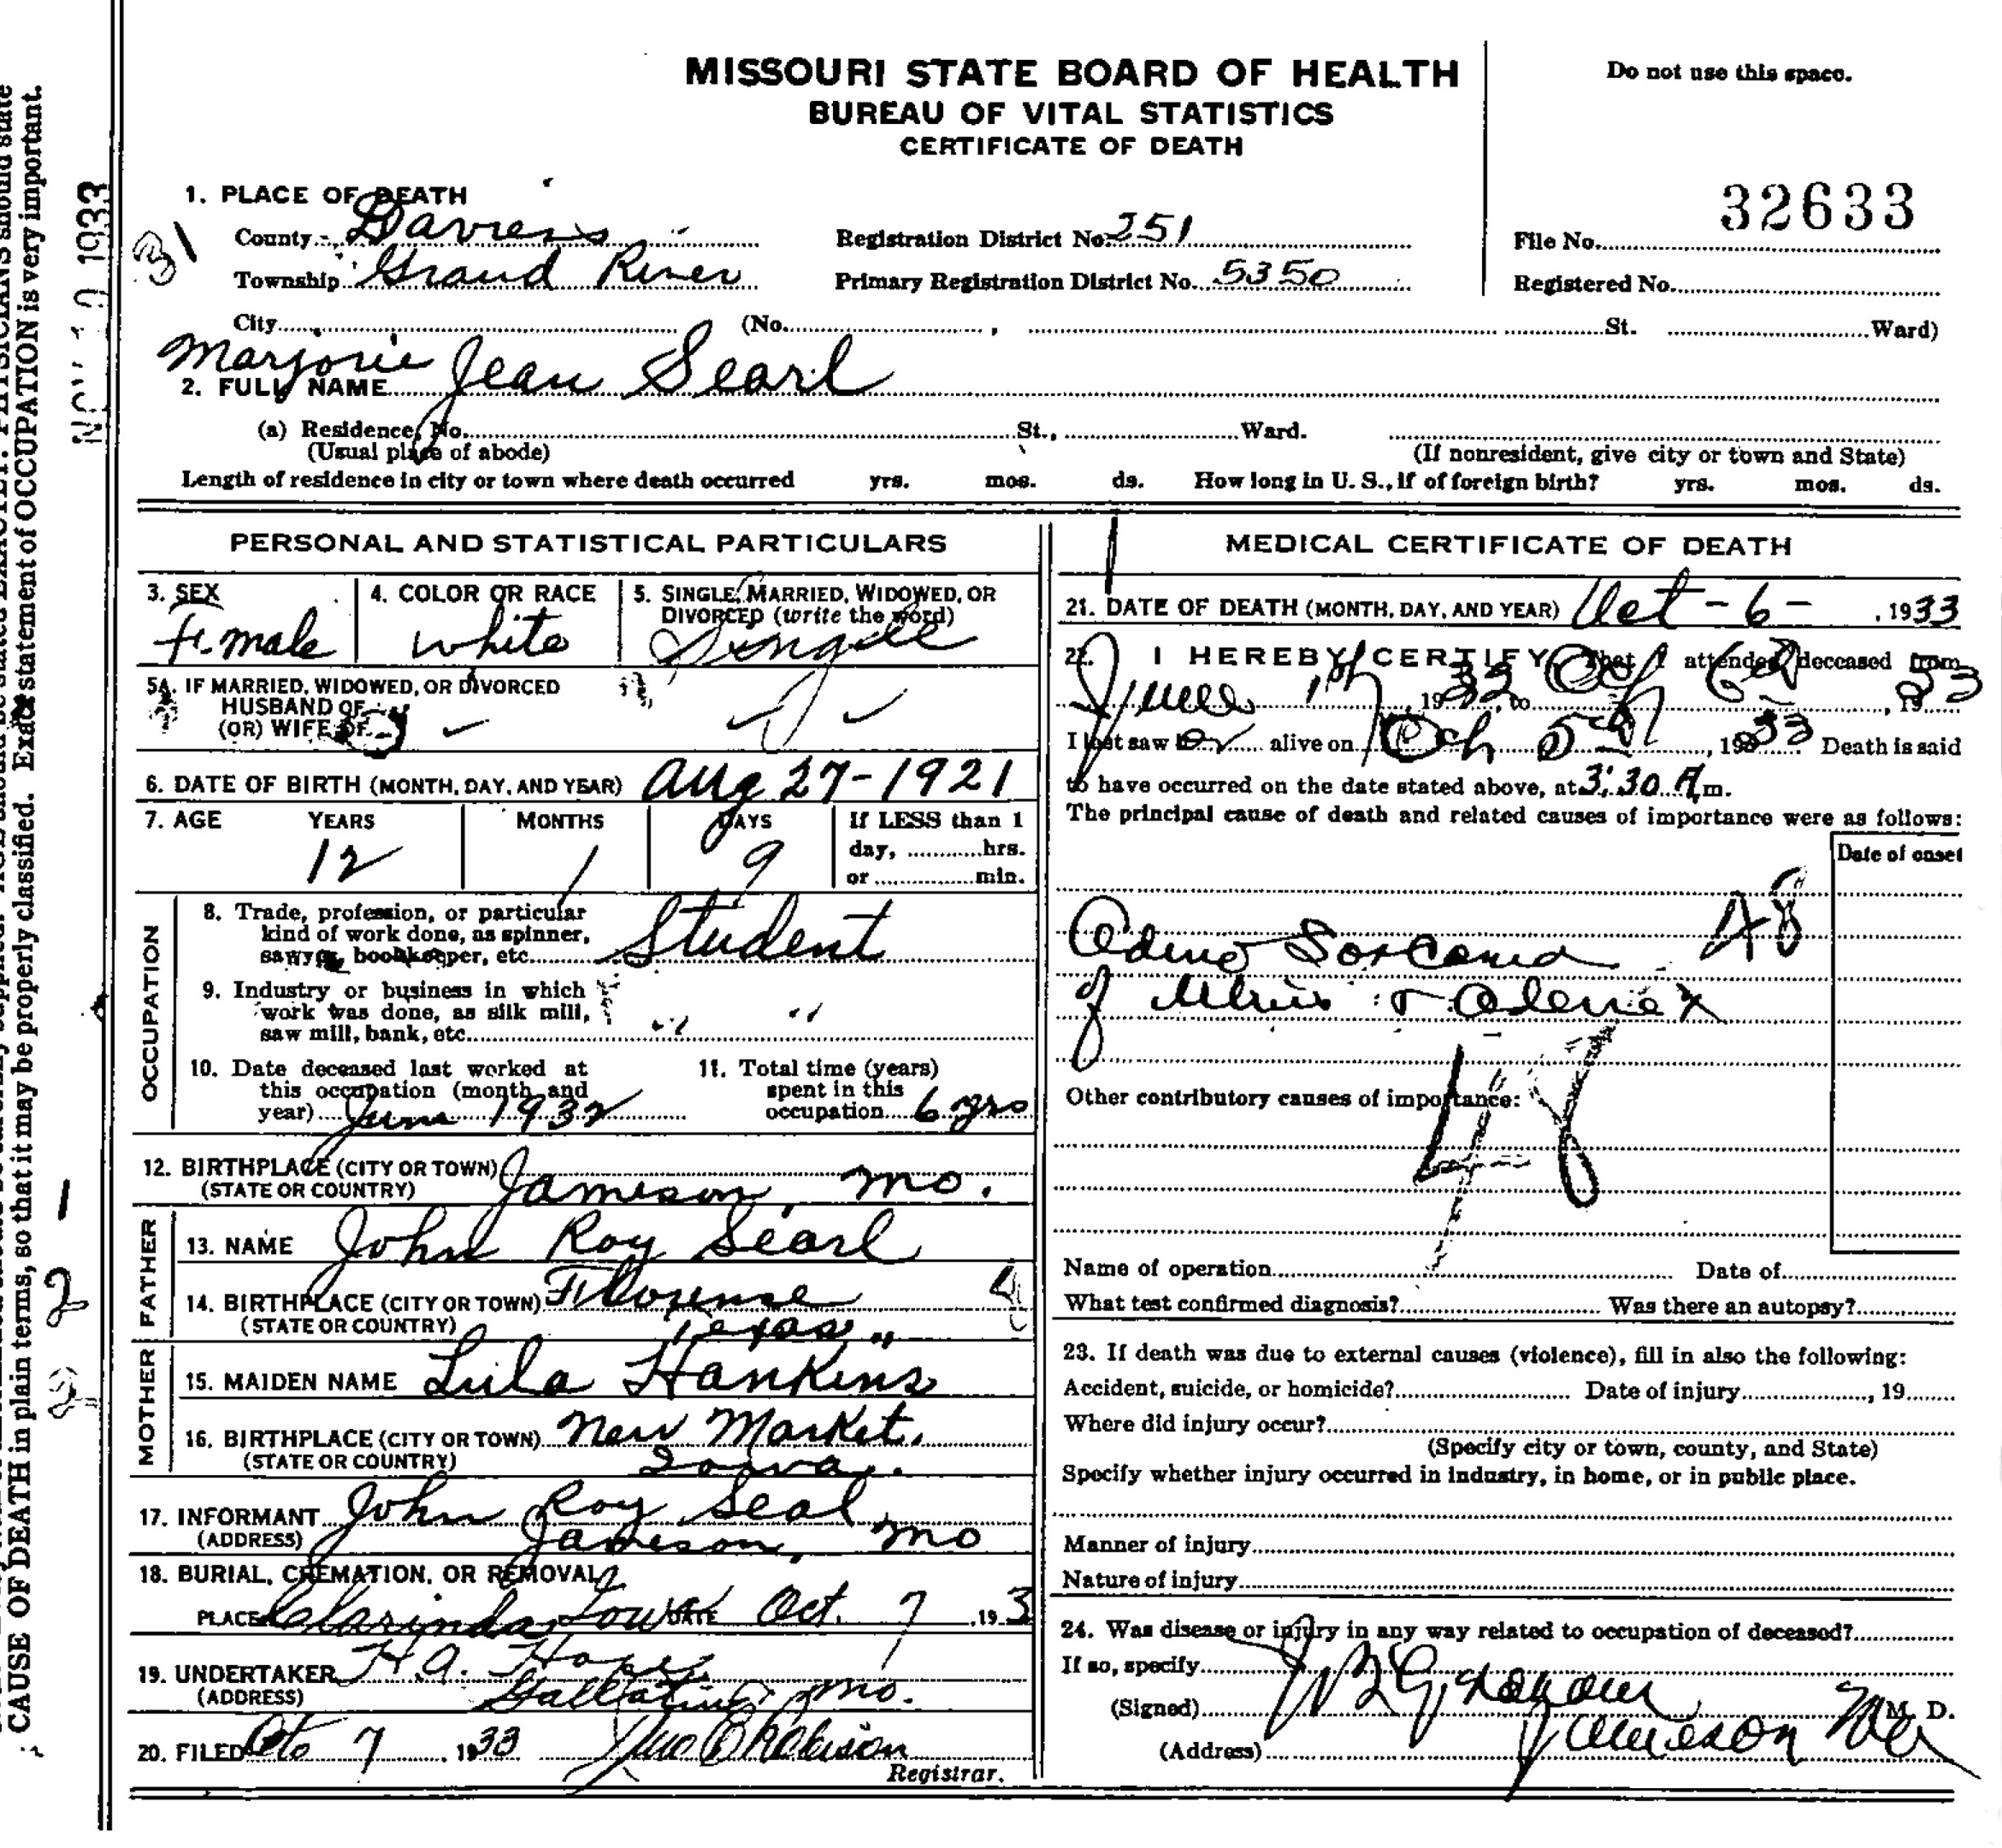 MISSOURI STATE BOARD OF HEALTH
BUREAU OF VITAL STATISTICS
CERTIFICATE OF DEATH
Do not use this space.
1. PLACE OF DEATH
County Daviess
Registration District No. 251
File No. 32633
31
Township Grand River
Primary Registration District No. 5350
Registered No.
City (No. , St. Ward)
2. FULL NAME Marjorie Jean Searl
(a) Residence, No. St., Ward.
(Usual place of abode) (If nonresident, give city or town and State)
Length of residence in city or town where death occurred yrs. mos. ds. How long in U. S., if of foreign birth? yrs. mos. ds.
PERSONAL AND STATISTICAL PARTICULARS
3. SEX
Female
4. COLOR OR RACE
White
5. SINGLE, MARRIED, WIDOWED, OR
DIVORCED (write the word)
Single
5A. IF MARRIED, WIDOWED, OR DIVORCED
HUSBAND OF
(OR) WIFE OF
6. DATE OF BIRTH (MONTH, DAY, AND YEAR) Aug 27-1921
7. AGE YEARS MONTHS DAYS If LESS than 1
day, hrs.
or min.
12 1 9
OCCUPATION
8. Trade, profession, or particular
kind of work done, as spinner,
sawyer, bookkeeper, etc. Student
9. Industry or business in which
work was done, as silk mill,
saw mill, bank, etc. " "
10. Date deceased last worked at
this occupation (month and
year) June 1932
11. Total time (years)
spent in this
occupation 6 yrs
12. BIRTHPLACE (CITY OR TOWN) Jameson, Mo.
(STATE OR COUNTRY)
FATHER
13. NAME John Roy Searl
14. BIRTHPLACE (CITY OR TOWN) Florense
(STATE OR COUNTRY) Texas
MOTHER
15. MAIDEN NAME Lula Hankins
16. BIRTHPLACE (CITY OR TOWN) New Market,
(STATE OR COUNTRY) Iowa.
17. INFORMANT John Roy Seal
(ADDRESS) Jameson, Mo
18. BURIAL, CREMATION, OR REMOVAL
PLACE Clarinda, Iowa DATE Oct. 7 , 193
19. UNDERTAKER H.A.
(ADDRESS) Gallatin, Mo.
20. FILED Oct 7 , 1933
Registrar.
MEDICAL CERTIFICATE OF DEATH
21. DATE OF DEATH (MONTH, DAY, AND YEAR) Oct-6- , 1933
22. I HEREBY CERTIFY, That I attended deceased from
June 1st , 1932, to Oct 6th , 1933
I last saw her alive on Oct 5th , 1933 Death is said
to have occurred on the date stated above, at 3:30 A. m.
The principal cause of death and related causes of importance were as follows:
Date of onset
48
of
48
Other contributory causes of importance:
Name of operation Date of
What test confirmed diagnosis? Was there an autopsy?
23. If death was due to external causes (violence), fill in also the following:
Accident, suicide, or homicide? Date of injury , 19
Where did injury occur?
(Specify city or town, county, and State)
Specify whether injury occurred in industry, in home, or in public place.
Manner of injury
Nature of injury
24. Was disease or injury in any way related to occupation of deceased?
If so, specify
(Signed) M. D.
(Address) Jameson Mo
NOV 10 1933
statement of OCCUPATION is very important.
CAUSE OF DEATH in plain terms, so that it may be properly classified. Exact